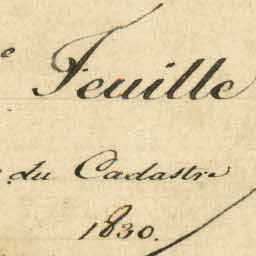 e Feuille
du Cadastre
1830.